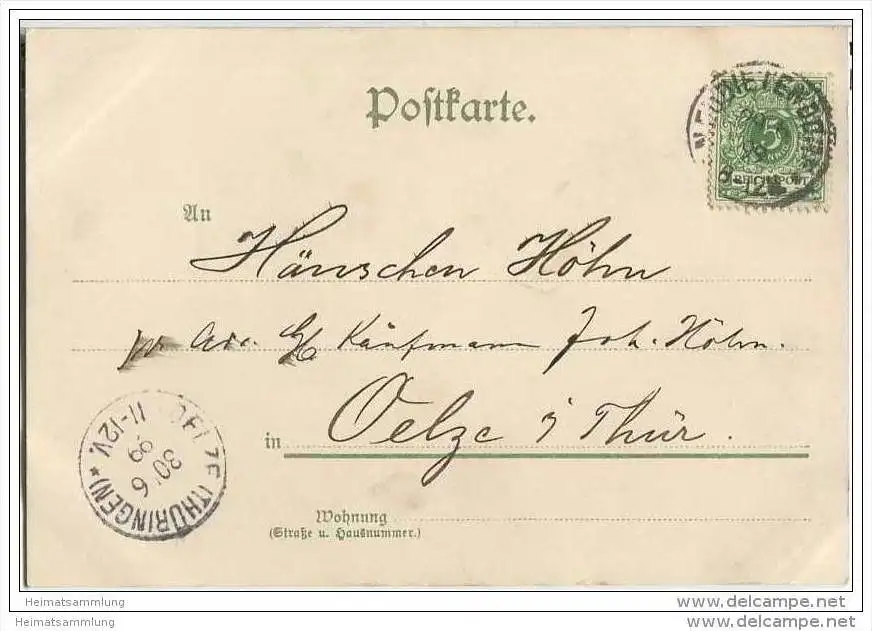 Postkarte.
NEUDIETENDORF
5
REICHSPOST
An
Hänschen Höhn
pr. Adr. Kaufmann Joh. Höhn.
in Oelze i Thür.
OELZE (THÜRINGEN) *
30. 6
99
11-12V.
Wohnung
(Straße u. Hausnummer.)
Heimatsammlung
Heimatsammlung
www.delcampe.net
www.delcampe.net